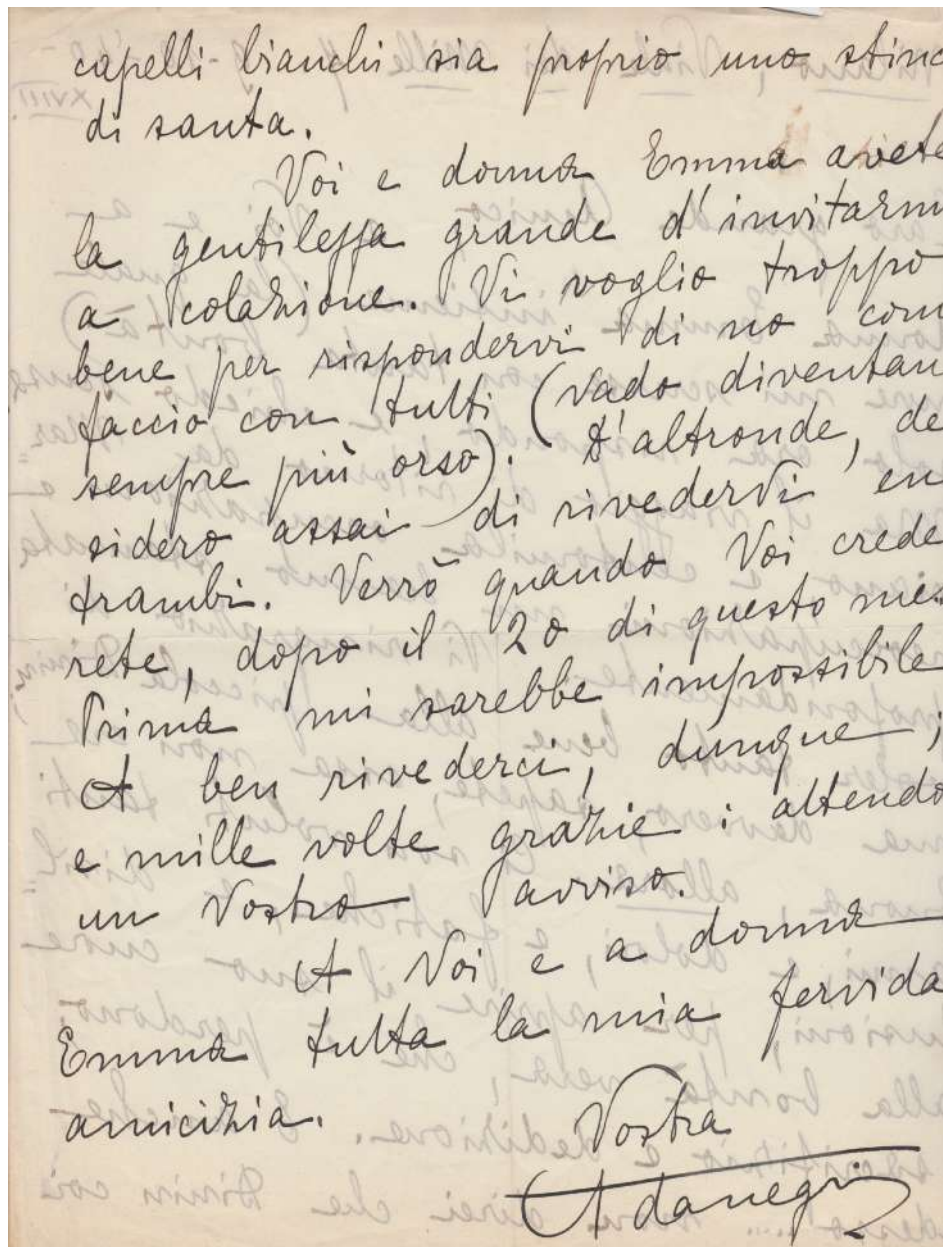 capelli bianchi sia proprio uno stinc
di santa.
Voi e donna Emma avete
la gentilezza grande d'invitarm
a colazione. Vi voglio troppo
bene per rispondervi di no com
faccio con tutti (vado diventan
sempre più orso). D'altronde, de
sidero assai di rivederVi en
trambi. Verrò quando Voi crede
rete, dopo il 20 di questo mes
Prima mi sarebbe impossibile
A ben rivederci, dunque;
e mille volte grazie: attendo
un Vostro avviso.
A Voi e a donna
Emma tutta la mia fervida
amicizia.
Vostra
Adanegri